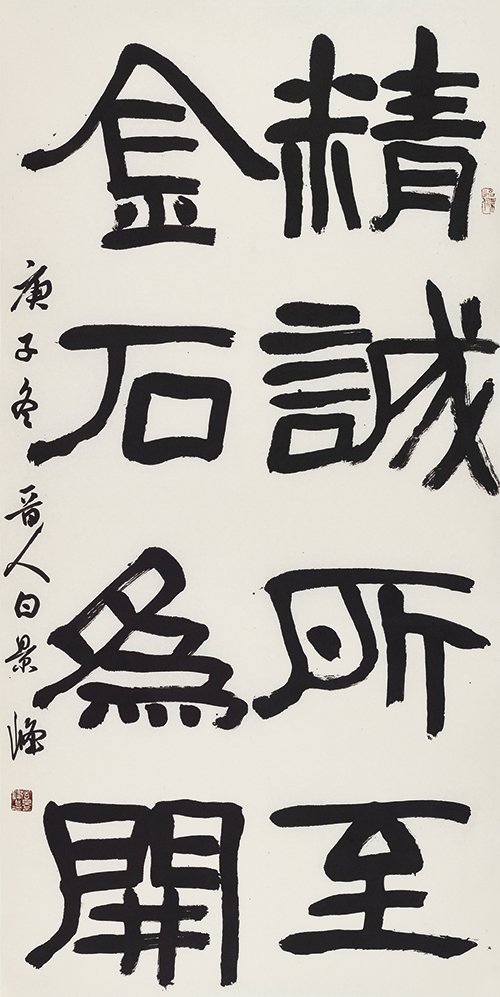 精誠所至
金石為開
庚子冬晋人白景峰